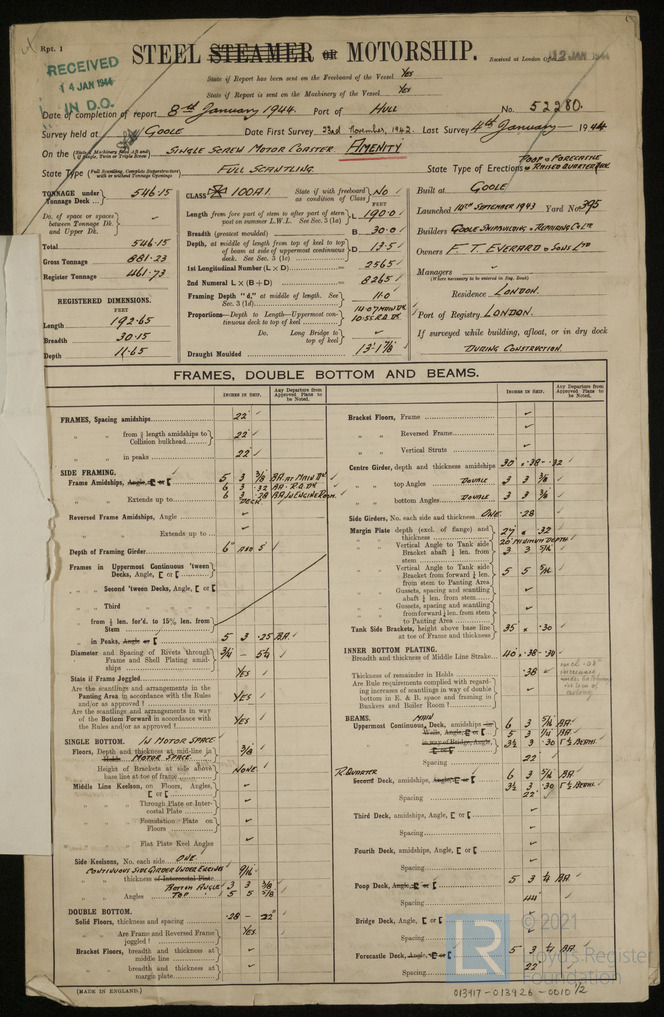 Rpt. 1
STEEL STEAMER OR MOTORSHIP.
RECEIVED
14 JAN 1944
IN D.O.
Received at London Office 12 JAN 1944
State if Report has been sent on the Freeboard of the Vessel Yes
State if Report is sent on the Machinery of the Vessel Yes
Date of completion of report 8th January 1944. Port of HULL No. 52280.
Survey held at GOOLE Date First Survey 23rd November, 1942. Last Survey 4th January 1944
On the SINGLE SCREW MOTOR COASTER AMENITY
State Type FULL SCANTLING. State Type of Erections POOP & FORECASTLE & RAISED QUARTER DECK
TONNAGE under Tonnage Deck 546.15
Do. of space or spaces between Tonnage Dk. and Upper Dk.
Total 546.15
Gross Tonnage 881.23
Register Tonnage 461.73
REGISTERED DIMENSIONS.
FEET
Length 192.65
Breadth 30.15
Depth 11.65
CLASS 100A1. State if with freeboard as condition of Class No
FEET
Length from fore part of stem to after part of stern post on summer L.W.L. See Sec. 3 (1a) L 190.0
Breadth (greatest moulded) B 30.0
Depth, at middle of length from top of keel to top of beam at side of uppermost continuous deck. See Sec. 3 (1c) D 13.5
1st Longitudinal Number (L × D) = 2565
2nd Numeral L × (B + D) = 8265
Framing Depth "d," at middle of length. See Sec. 3 (1d) 11.0
Proportions—Depth to Length—Uppermost continuous deck to top of keel 14.07 MAIN DK 10.55 R.Q. DK
Do. Long Bridge to top of keel
Draught Moulded 13'-1 7/8"
Built at GOOLE
Launched 14TH SEPTEMBER 1943 Yard No. 395
Builders GOOLE SHIPBUILDING & REPAIRING Co LTD
Owners F. T. EVERARD & SONS LTD
Managers
(Where necessary to be entered in Reg. Book)
Residence LONDON.
Port of Registry LONDON.
If surveyed while building, afloat, or in dry dock
DURING CONSTRUCTION.
FRAMES, DOUBLE BOTTOM AND BEAMS.
INCHES IN SHIP. Any Departure from Approved Plans to be Noted.
FRAMES, Spacing amidships 22"
from 3/5 length amidships to Collision bulkhead 22"
in peaks 22
SIDE FRAMING.
Frame Amidships, Angle, [ or [ 5 3 3/8 BA. AT MAIN DK
6 3 .32 BA. R.Q. DK
6 3 .38 BA IN ENGINE ROOM.
Extends up to DECK
Reversed Frame Amidships, Angle
Extends up to
Depth of Framing Girder 6" AND 5"
Frames in Uppermost Continuous 'tween Decks, Angle, [ or [
Second 'tween Decks, Angle, [ or [
Third
from 1/5 len. for'd. to 15% len. from Stem
in Peaks, Angle or [ 5 3 .25 BA
Diameter and Spacing of Rivets through Frame and Shell Plating amidships 3/4 - 5 1/4
State if Frame Joggled YES
Are the scantlings and arrangements in the Panting Area in accordance with the Rules and/or as approved? YES
Are the scantlings and arrangements in way of the Bottom Forward in accordance with the Rules and/or as approved? YES
SINGLE BOTTOM. IN MOTOR SPACE
Floors, Depth and thickness at mid-line in Holds MOTOR SPACE 3/8
Height of Brackets at side above base line at toe of frame NONE.
Middle Line Keelson, on Floors, Angles, [ or [
Through Plate or Intercostal Plate
Foundation Plate on Floors
Flat Plate Keel Angles
Side Keelsons, No. each side ONE
CONTINUOUS SIDE GIRDER UNDER ENGINES
thickness of Intercostal Plate 9/16
BOTTOM ANGLE 3 3 3/8
Angles TOP 5 5 5/8
DOUBLE BOTTOM.
Solid Floors, thickness and spacing .28 - 22"
Are Frame and Reversed Frame joggled? YES.
Bracket Floors, breadth and thickness at middle line
breadth and thickness at margin plate
(MADE IN ENGLAND.)
INCHES IN SHIP. Any Departure from Approved Plans to be Noted.
Bracket Floors, Frame
Reversed Frame
Vertical Struts
Centre Girder, depth and thickness amidships 30 × .38 - .32
top Angles DOUBLE 3 3 3/8
bottom Angles DOUBLE 3 3 3/8
Side Girders, No. each side and thickness ONE. .28
Margin Plate depth (excl. of flange) and thickness 27 × .32
20" MINIMUM DEPTH
Vertical Angle to Tank side Bracket abaft 1/4 len. from stem 3 3 5/16
Vertical Angle to Tank side Bracket from forward 1/4 len. from stem to Panting Area 5 5 5/16
Gussets, spacing and scantling abaft 1/4 len. from stem
Gussets, spacing and scantling from forward 1/4 len. from stem to Panting Area
Tank Side Brackets, height above base line at toe of Frame and thickness 35 × .30
INNER BOTTOM PLATING.
Breadth and thickness of Middle Line Strake 40 × .38 - .34
Thickness of remainder in Holds .38
Are Rule requirements complied with regarding increases of scantlings in way of double bottom in E. & B. space and framing in Bunkers and Boiler Room?
BEAMS.
MAIN
Uppermost Continuous Deck, amidships 6 3 5/16 BA
in Wells, Angle, [ or [ 5 3 1/4 BA
in way of Bridge, Angle, [ or [ 3 1/2 3 .30
Spacing 22
R. QUARTER
Second Deck, amidships, Angle, [ or [ 6 3 5/16 BA
3 1/2 3 .30
Spacing 22"
Third Deck, amidships, Angle, [ or [
Spacing
Fourth Deck, amidships, Angle, [ or [
Spacing
Poop Deck, Angle, [ or [ 5 3 1/4 BA
Spacing 44"
Bridge Deck, Angle, [ or [
Spacing
Forecastle Deck, Angle, [ or [ 5 3 1/4 BA
Spacing 22"
LR
© 2021
Lloyd's Register
Foundation
013917-013926-0010 1/2